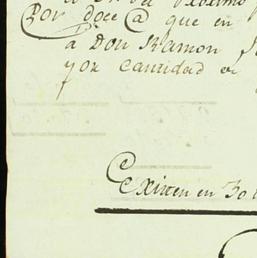 Por doce @ que en
à Don Ramon
por cantidad
Existen en 30